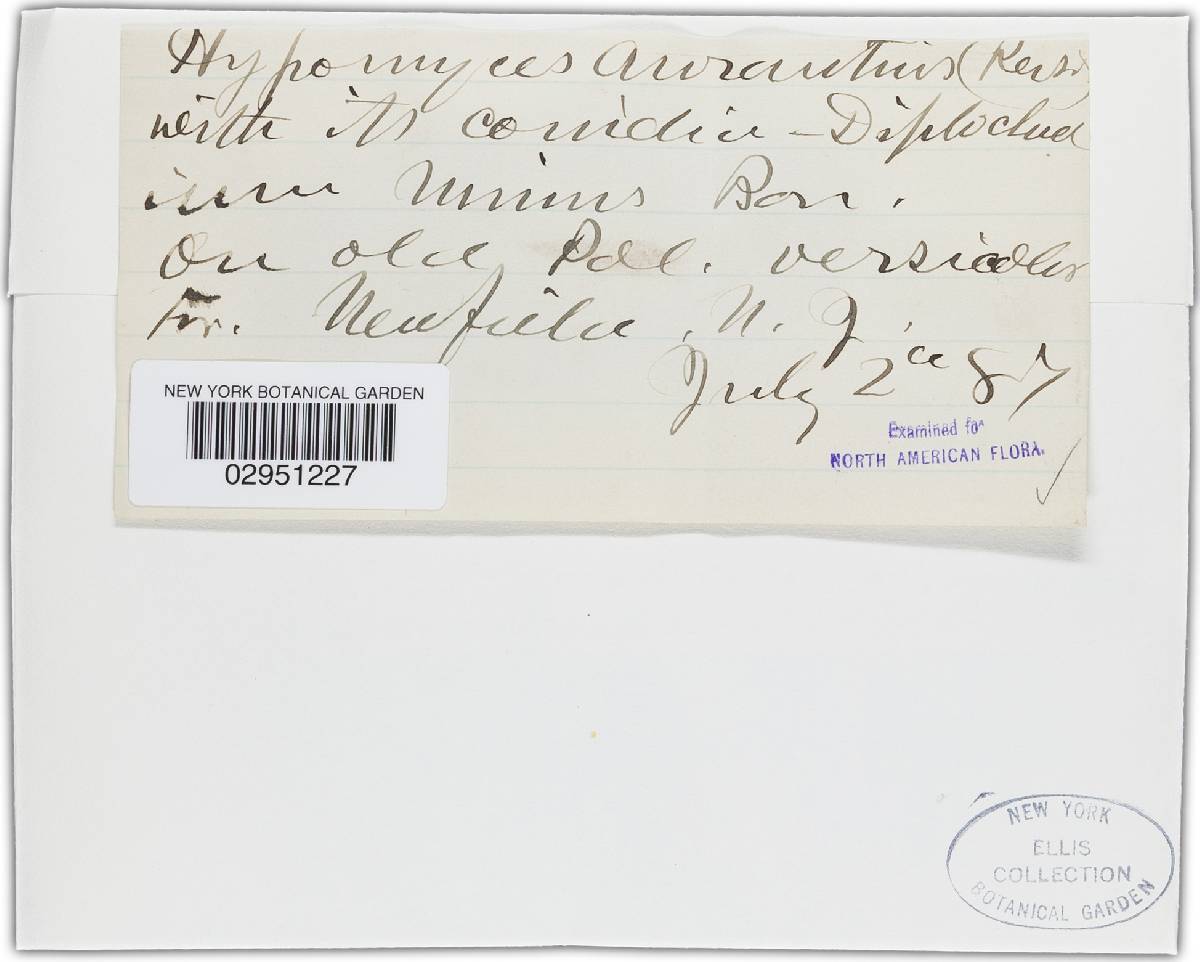 Hypomyces aurantius (Pers.)
with its conidia - Diploclad
ium minus Bon.
On old Pol. versicolor
Fr. Newfield, N. J.
July 2d 87
NEW YORK BOTANICAL GARDEN
02951227
Examined for
NORTH AMERICAN FLORA.
NEW YORK
ELLIS
COLLECTION
BOTANICAL GARDEN